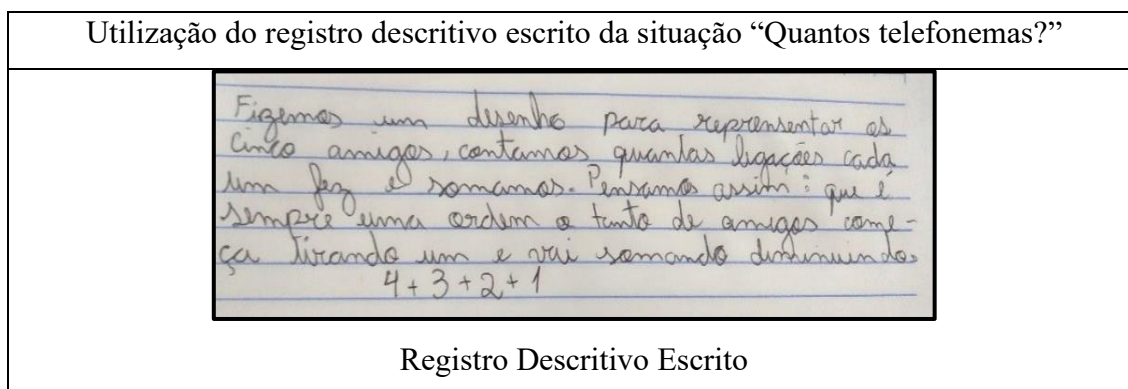 Utilização do registro descritivo escrito da situação “Quantos telefonemas?”
Fizemos um desenho para reprensentar os
cinco amigos, contamos quantas ligações cada
um fez e somamos. Pensamos assim: que é
sempre uma ordem o tanto de amigos come-
ça tirando um e vai somando diminuindo.
4 + 3 + 2 + 1
Registro Descritivo Escrito